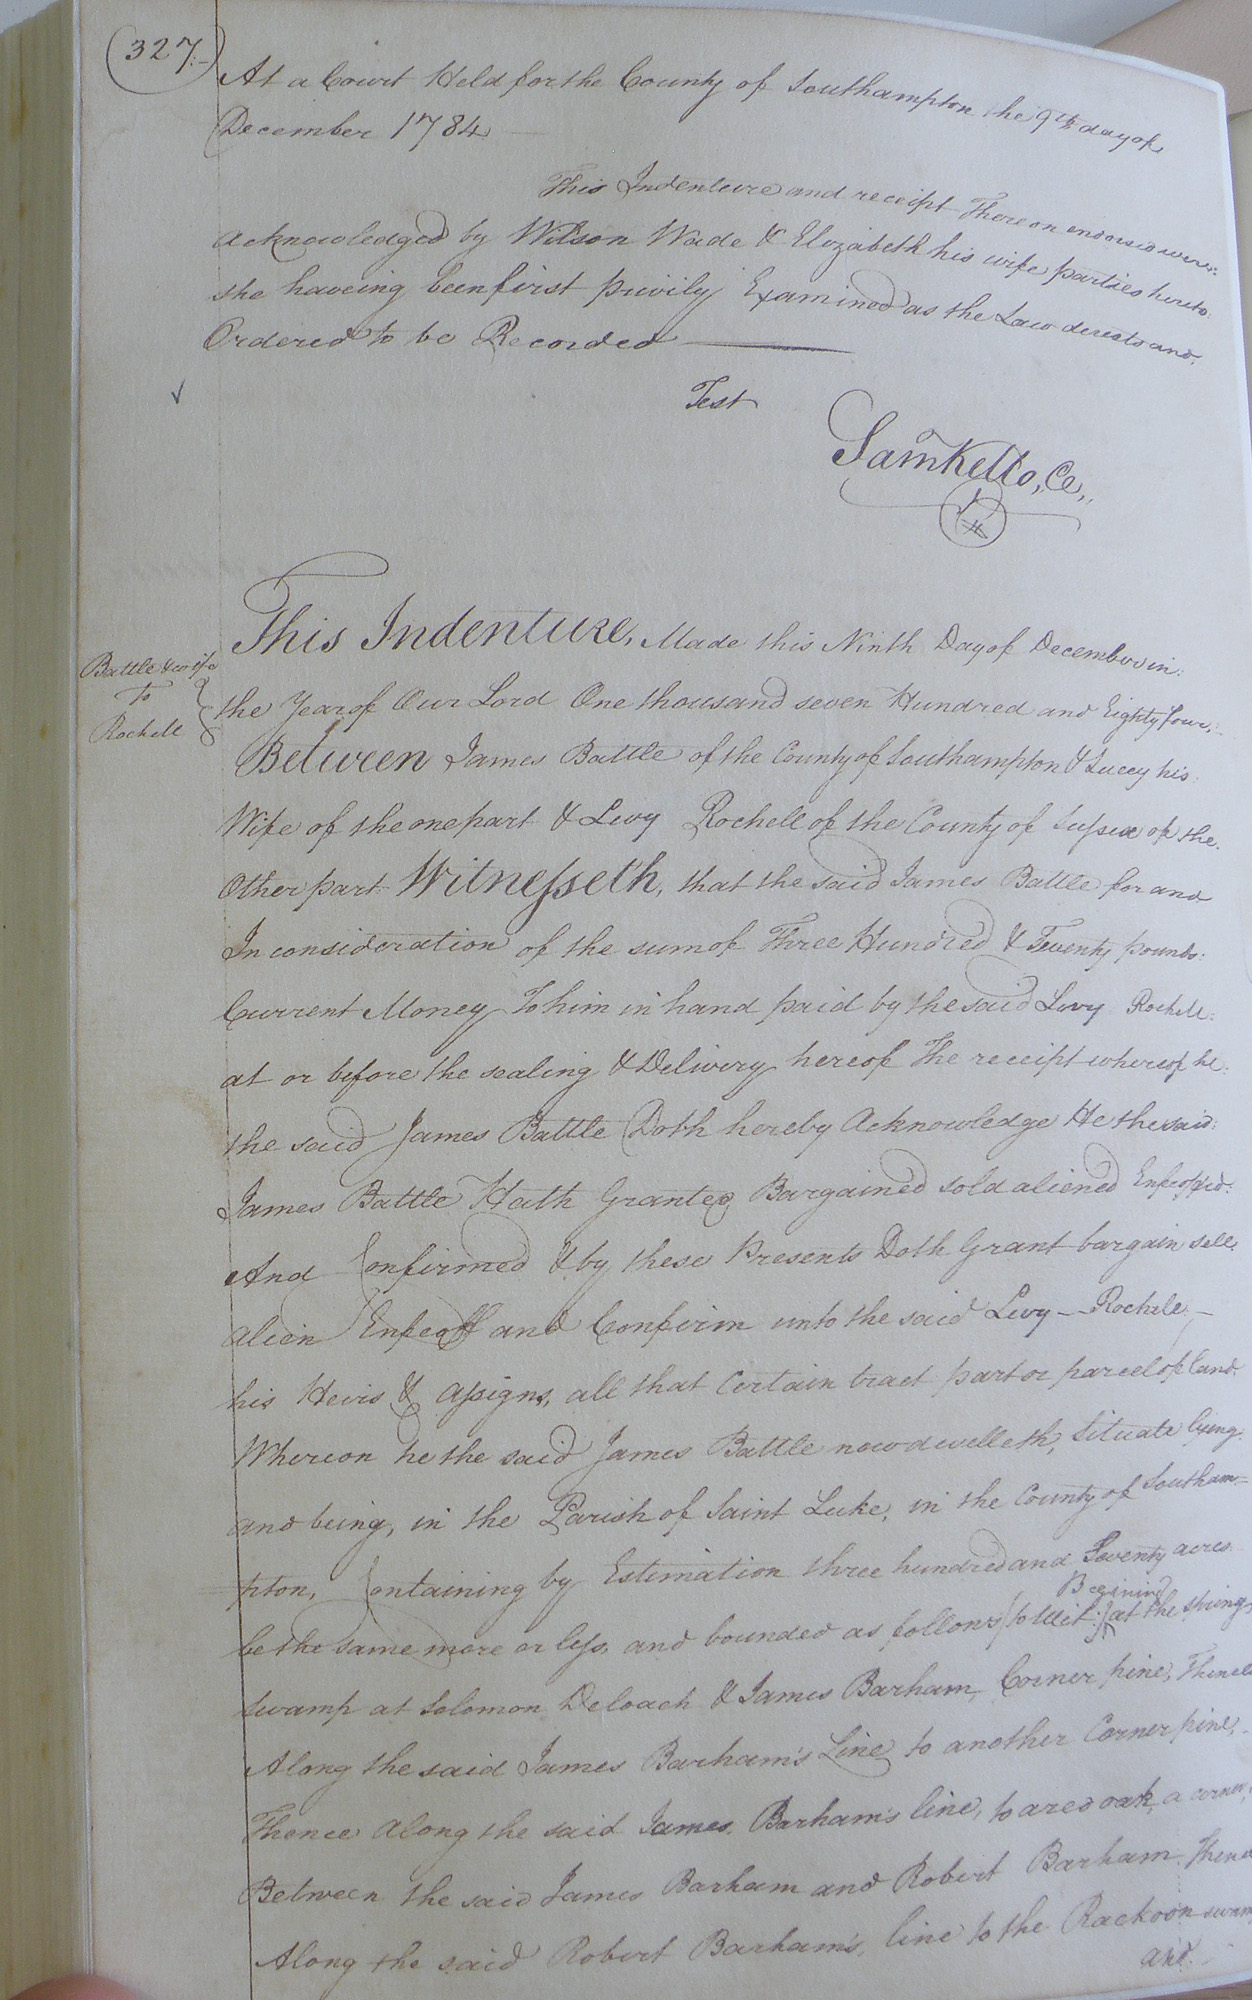 327.
At a Court Held for the County of Southampton the 9th day of
December 1784
This Indenture and receipt There on endorsed were
acknowledged by Witson Wade & Elizabeth his wife parties hereto
she haveing been first privily Examined as the Law derests and
Ordered to be Recorded
Test
Sam Kello, Ce,
This Indenture, Made this Ninth Day of December in
Battle & wife
To
Rochell
the Year of Our Lord One thousand seven Hundred and Eighty four,
Between James Battle of the County of Southampton & Lucey his
Wife of the one part & Levy Rochell of the County of Sussex of the
Other part Witnesseth, that the said James Battle for and
In consideration of the sum of Three Hundred & Twenty pounds
Current Money To him in hand paid by the said Levy Rochell
at or before the sealing & Delivery hereof The receipt whereof he
the said James Battle Doth hereby Acknowledge He the said
James Battle Hath Granted Bargained sold aliened Enfeoffed
And Confirmed & by these Presents Doth Grant bargain sell
alien Enfeoff and Confirm unto the said Levy Rochell
his Heirs & assigns, all that Certain tract part or parcel of Land
Whereon he the said James Battle now dwelleth, Situate lying
and being, in the Parish of Saint Luke, in the County of Southam=
pton, Containing by Estimation three hundred and Seventy acres
be the same more or less, and bounded as follows (to Wit:) Begining at the spring
swamp at Solomon Deloach & James Barham, Corner pine, Thence
Along the said James Barham's Line to another Corner pine,
Thence along the said James Barham's line, to a red oak, a corner,
Between the said James Barham and Robert Barham Thence
Along the said Robert Barham's, line to the Rackoon swam
and